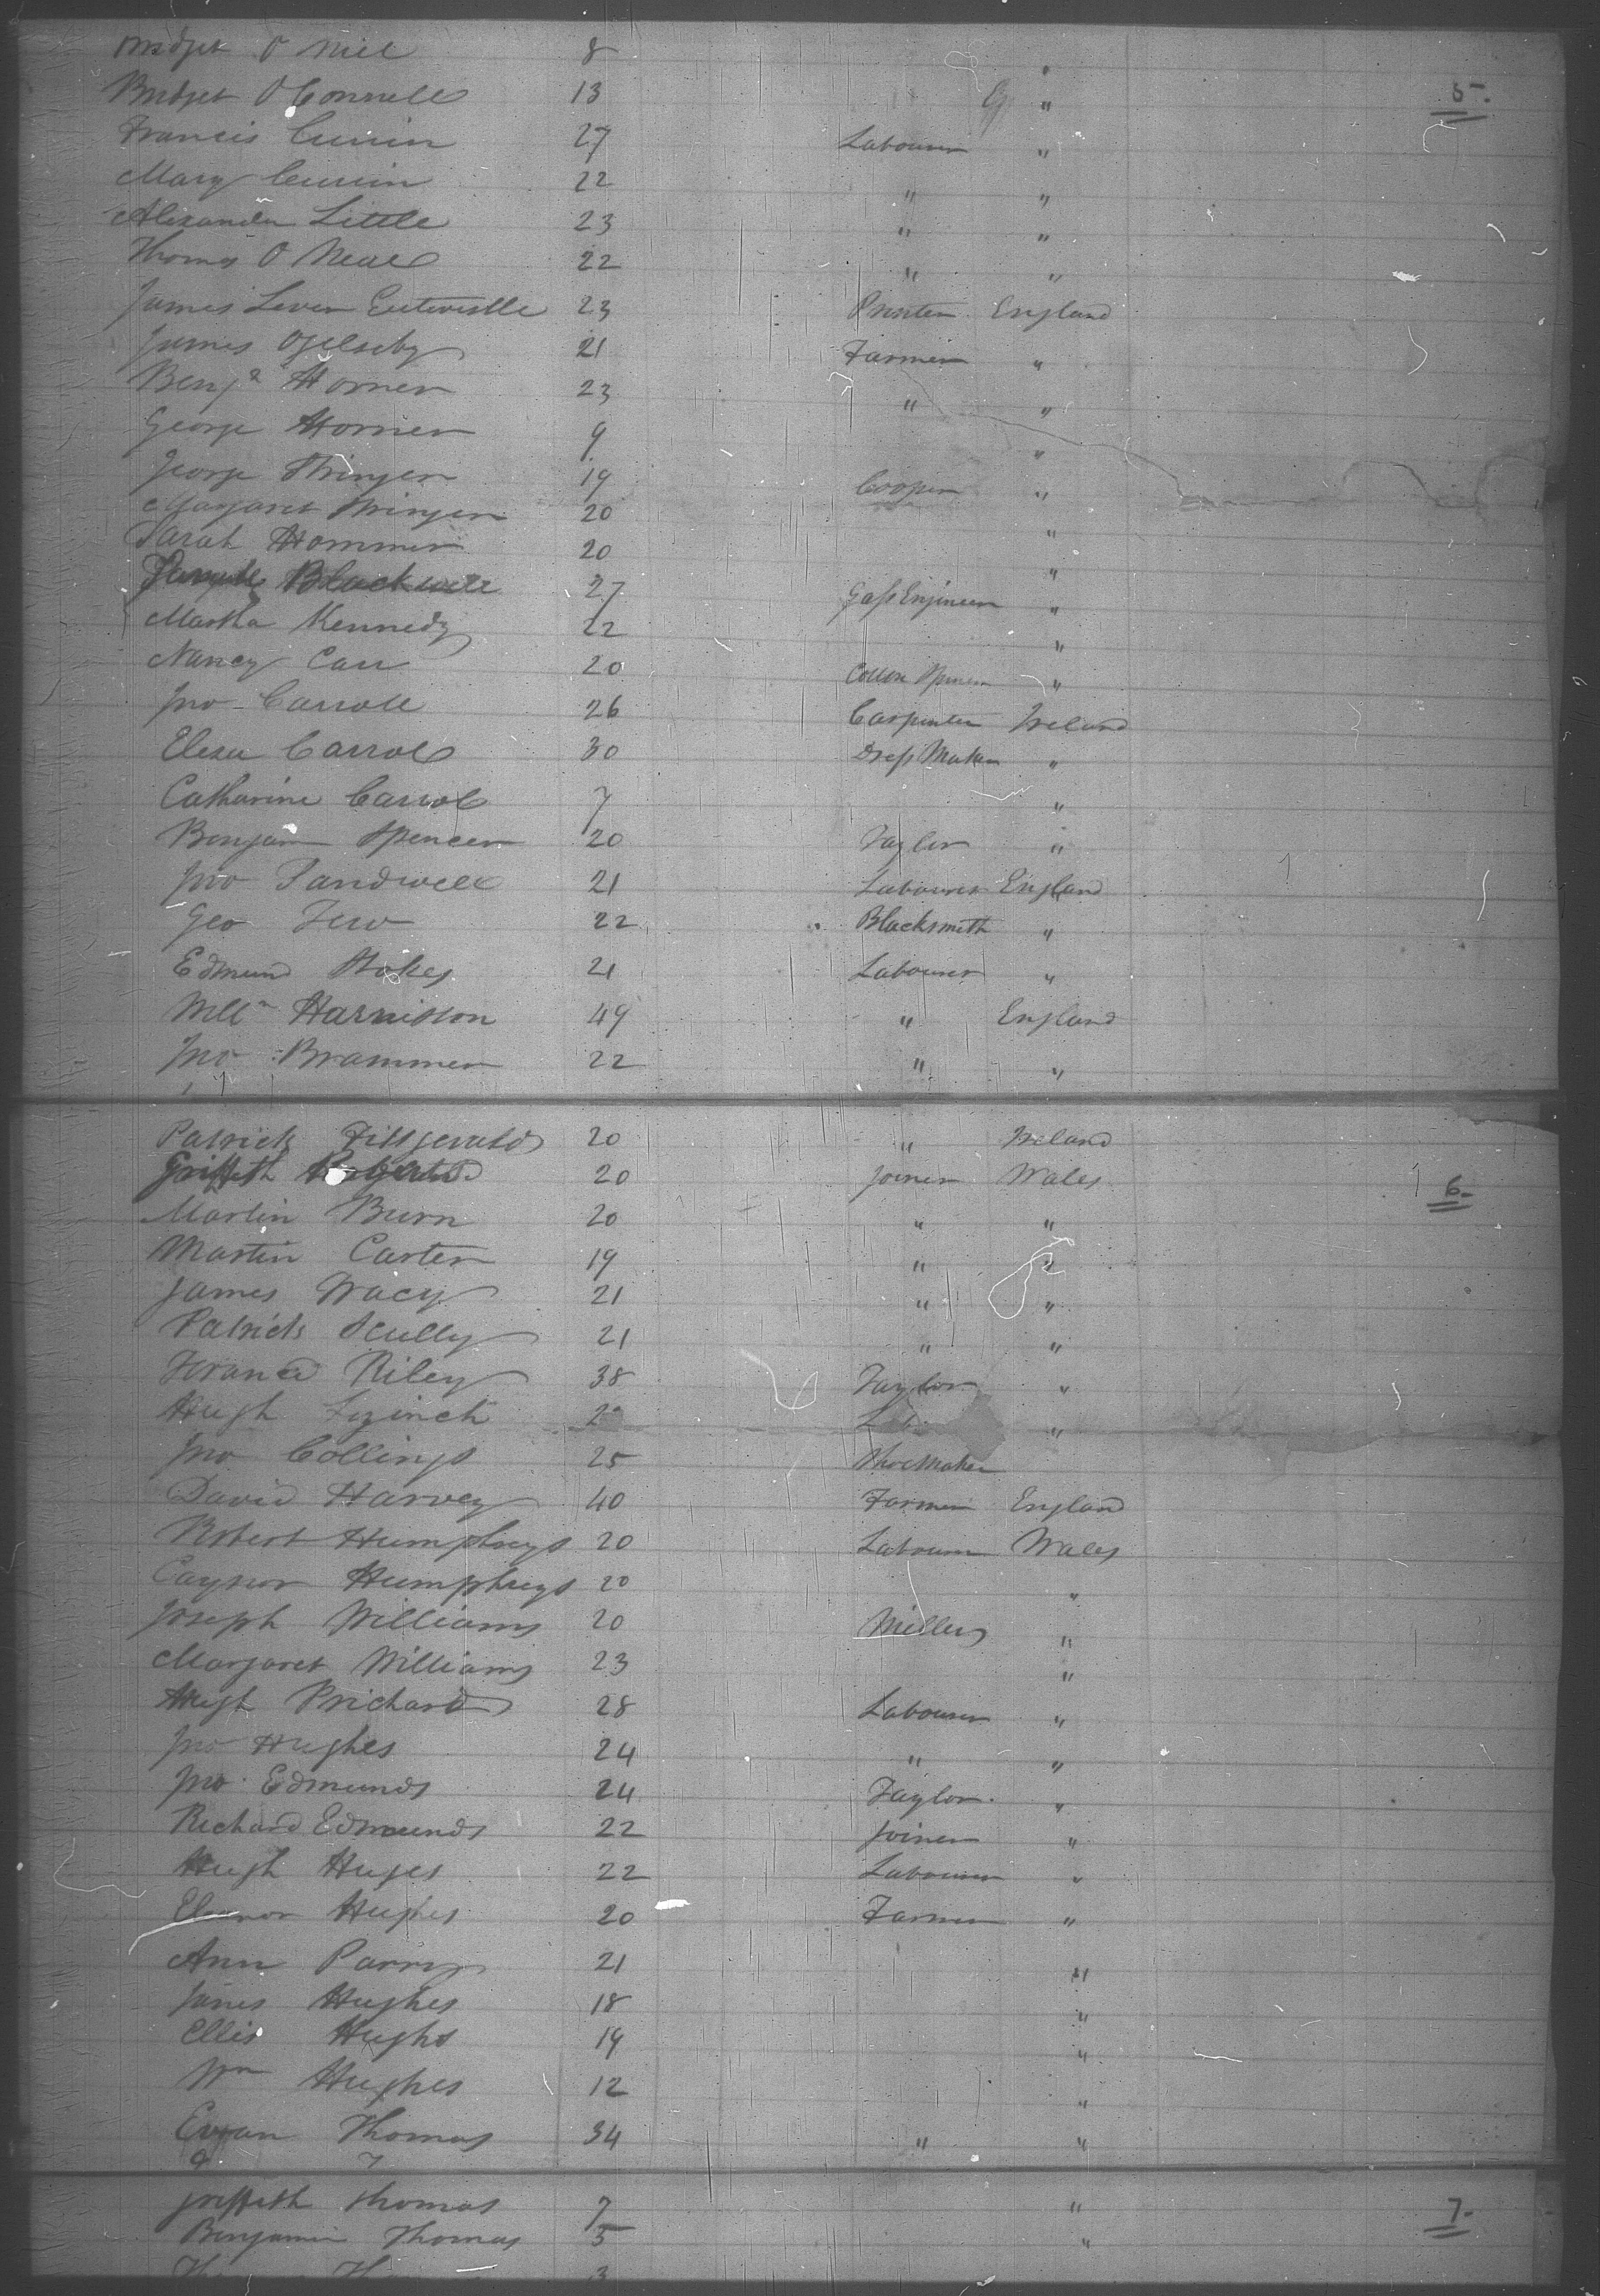 Bridget O Niel 8 "
Bridget O Connell 13 " 5.
Francis 27 Labourer "
Mary 22 " "
Alexander Little 23 " "
Thomas O Neal 22 " "
James Lever Entwistle 23 Printer England
James Ogelseby 21 Farmer "
Benj Horner 23 " "
George Horner 9 "
George Stringer 19 Cooper "
Margaret Stringer 20 "
Sarah Hommer 20 "
Blackwell 27 Gass Engineer "
Martha Kennedy 22 "
Nancy Carr 20 Cotton Spiner "
Jno Carroll 26 Carpenter Ireland
Eliza Carrol 30 Dress Maker "
Catharine Carrol 7 "
Benjamin Spencer 20 Taylor "
Jno Sandwell 21 Labourer England
Geo Few 22 Blacksmith "
Edmund Stokes 21 Labourer "
Willm Harrisson 49 " England
Jno Brammer 22 " "
Patrick Fittsgerald 20 " Ireland
Griffith Roberts 20 Joiner Wales 6.
Martin Burn 20 " "
Martin Carter 19 " "
James Tracy 21 " "
Patrick Scully 21 " "
Riley 38 Taylor "
Hugh "
Jno Collings 25 Shoe Maker
David Harvey 40 Farmer England
Robert Humphreys 20 Labourer Wales
Humphreys 20 "
Joseph Williams 20 Miller "
Margaret Williams 23 "
Hugh Prichard 28 Labourer "
Jno Hughes 24 " "
Jno Edmunds 24 Taylor "
Richard Edmunds 22 Joiner "
Hugh Huges 22 Labourer "
Eleanor Hughes 20 Farmer "
Ann Parry 21 "
Janes Hughes 18 "
Ellis Hughs 19 "
Wm Hughes 12 "
Evan Thomas 34 " "
Griffith Thomas 7 " 7.
Benjamin Thomas 5 "
3